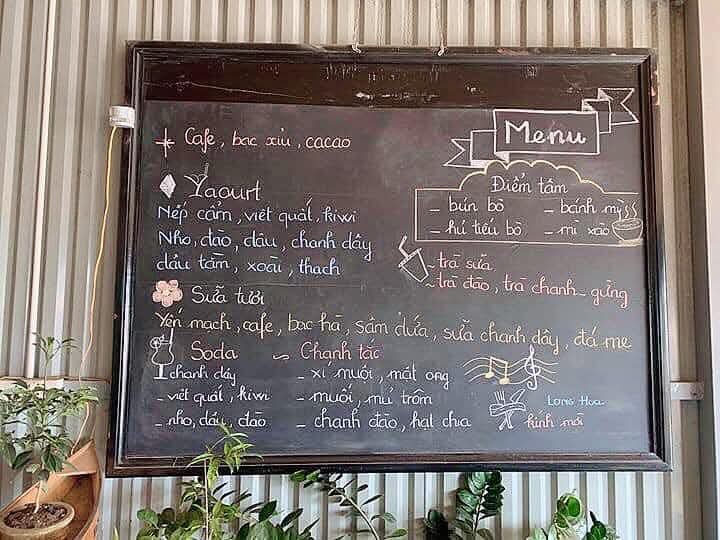 Menu
Cafe, bạc xỉu, cacao
Yaourt
Nếp cẩm, việt quất, kiwi
Nho, đào, dâu, chanh dây
dâu tằm, xoài, thạch
Điểm tâm
- bún bò
- bánh mì
- hủ tiếu bò
- mì xào
- trà sữa
- trà đào, trà chanh - gừng
Sữa tươi
Yến mạch, cafe, bạc hà, sâm dứa, sữa chanh dây, đá me
Soda
chanh dây
- việt quất, kiwi
- nho, dâu, đào
~ Chanh tắc
- xí muội, mật ong
- muối, mủ trôm
- chanh đào, hạt chia
Long Hoa
kính mời